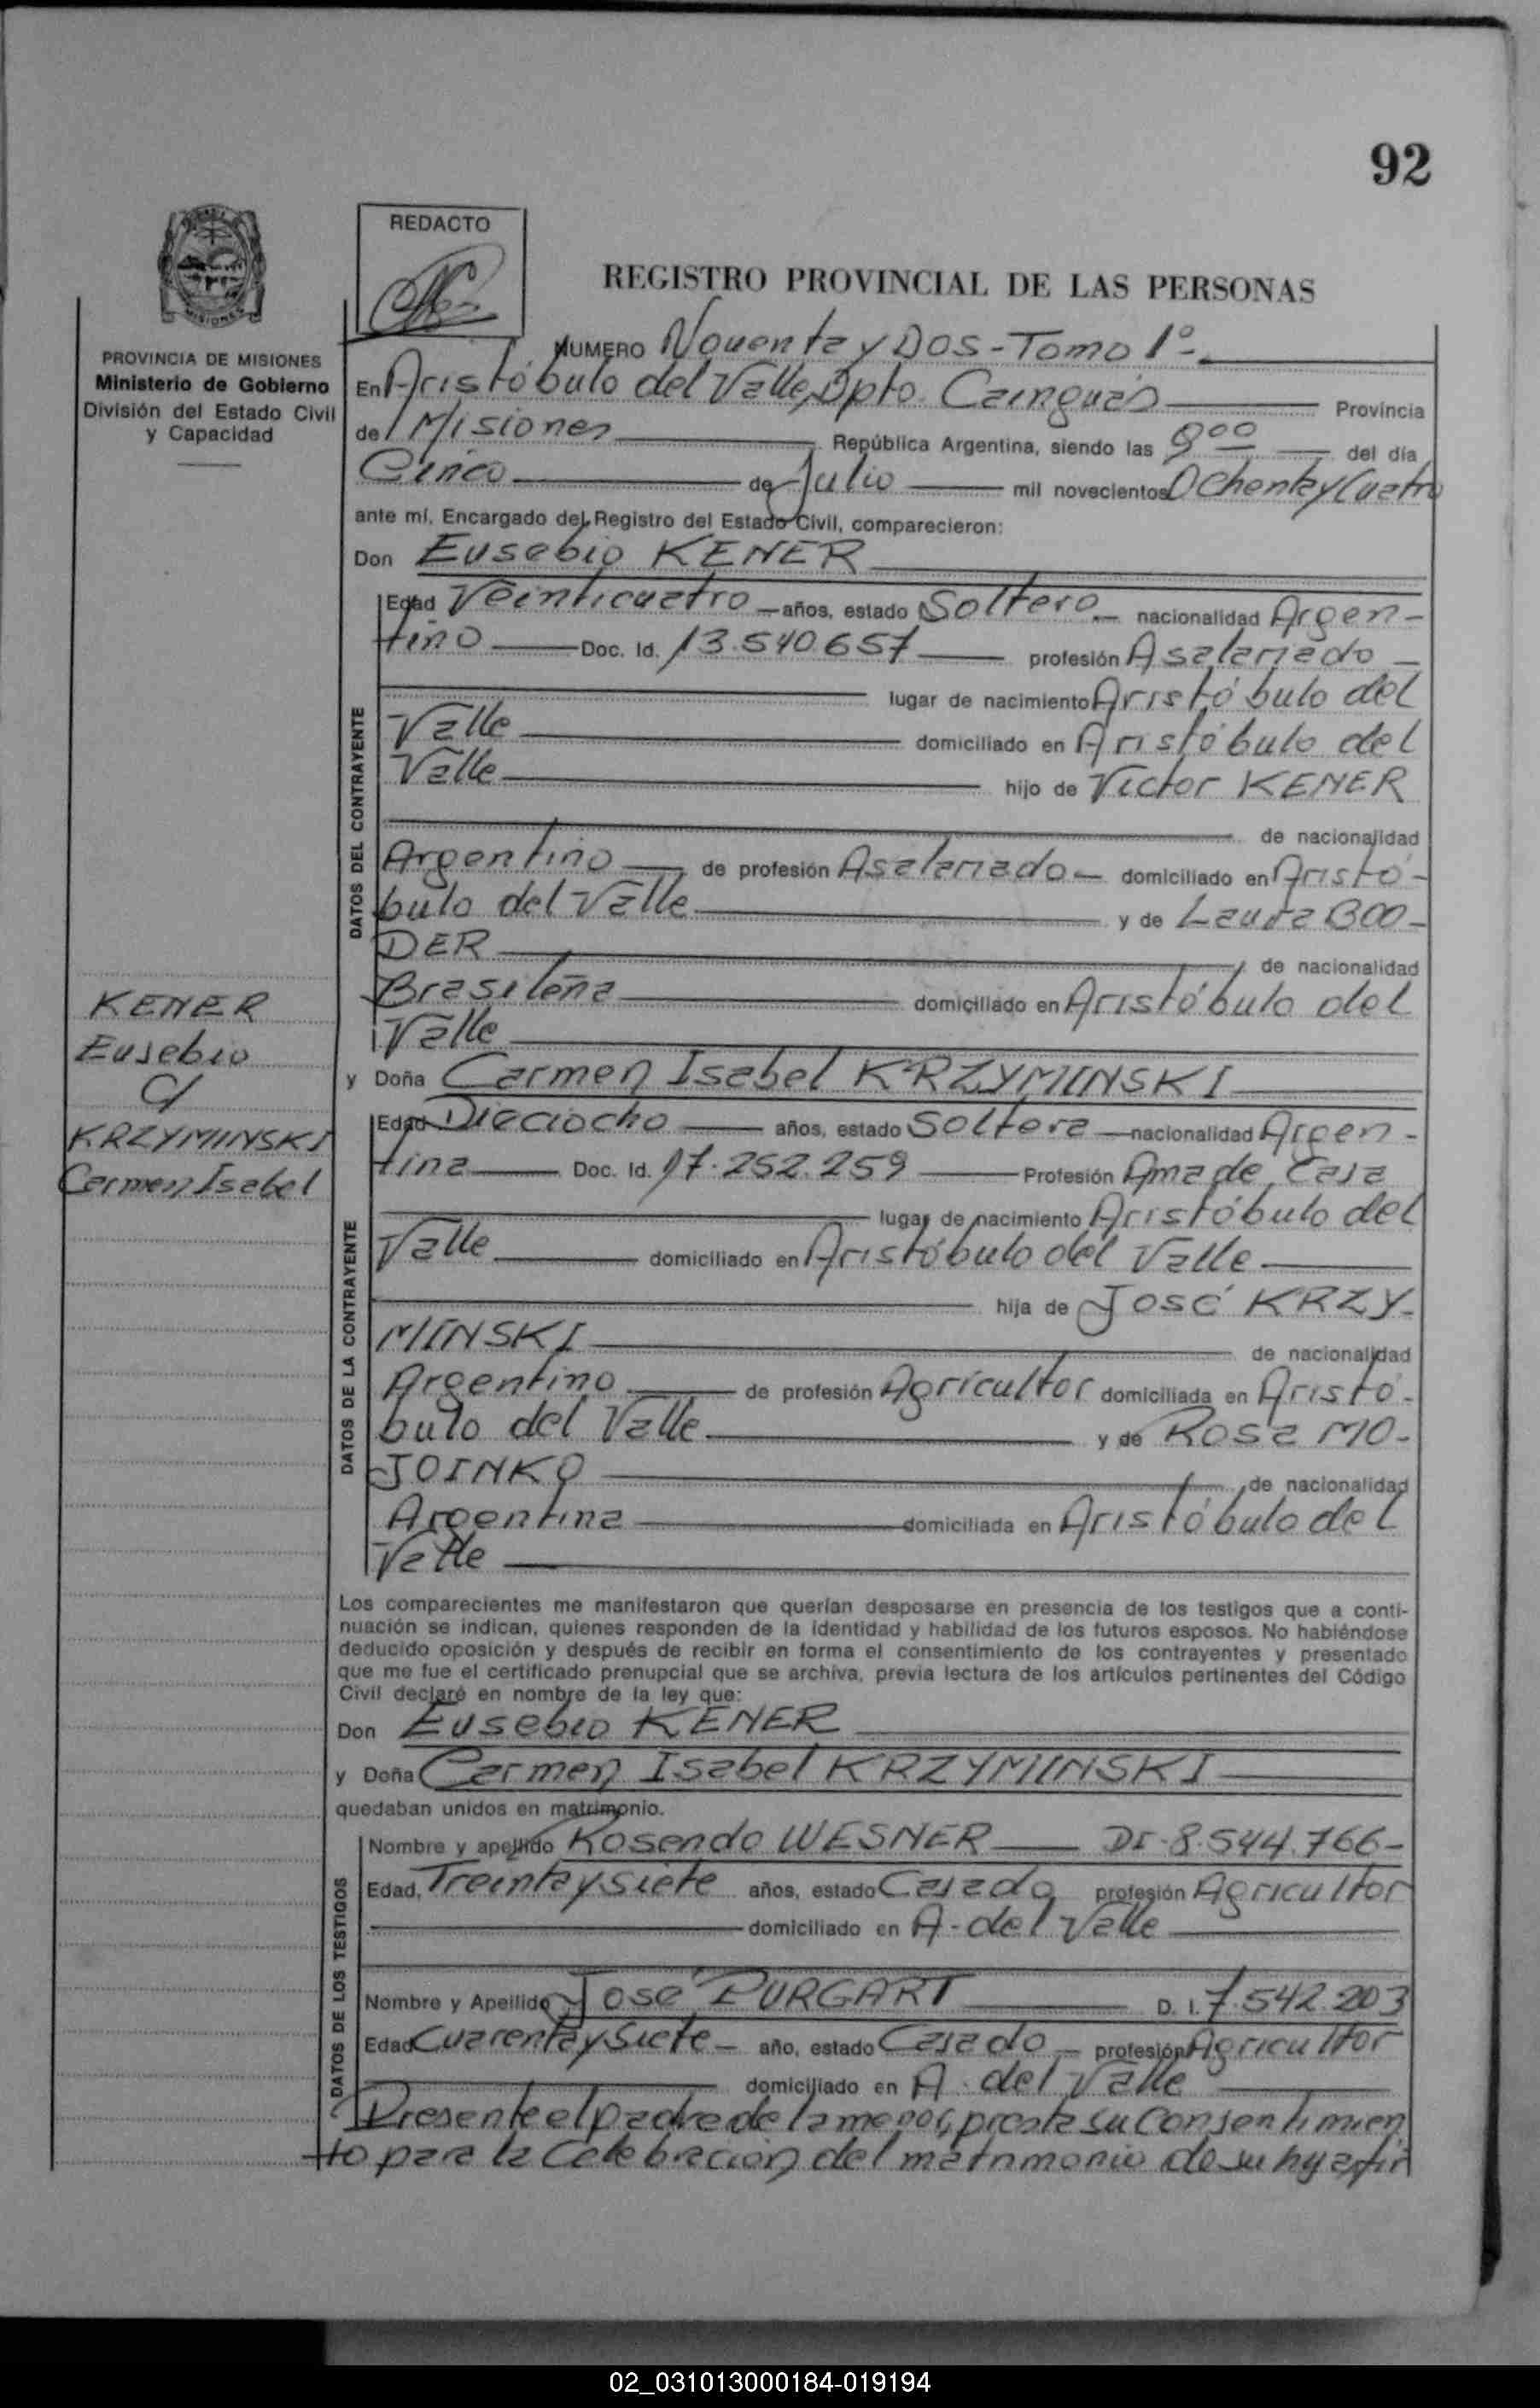 92
REDACTO
REGISTRO PROVINCIAL DE LAS PERSONAS
MISIONES
PROVINCIA DE MISIONES
Ministerio de Gobierno
División del Estado Civil
y Capacidad
NUMERO Noventa y Dos - Tomo 1º -
En Aristóbulo del Valle, Dpto. Cainguás Provincia
de Misiones República Argentina, siendo las 8 00 del día
Cinco de Julio mil novecientos Ochenta y Cuatro
ante mí, Encargado del Registro del Estado Civil, comparecieron:
Don Eusebio KENER
DATOS DEL CONTRAYENTE
Edad Veinticuatro años, estado Soltero nacionalidad Argen-
tino Doc. Id. 13.540.657 profesión Asalariado
lugar de nacimiento Aristóbulo del
Valle domiciliado en Aristóbulo del
Valle hijo de Victor KENER
de nacionalidad
Argentino de profesión Asalariado domiciliado en Aristó-
bulo del Valle y de Laura BOO-
DER de nacionalidad
Brasileña domiciliado en Aristóbulo del
Valle
KENER
Eusebio
C/
KRZYMINSKI
Carmen Isabel
y Doña Carmen Isabel KRZYMINSKI
DATOS DE LA CONTRAYENTE
Edad Dieciocho años, estado Soltera nacionalidad Argen-
tina Doc. Id. 17.252.259 Profesión Ama de Casa
lugar de nacimiento Aristóbulo del
Valle domiciliado en Aristóbulo del Valle
hija de José KRZY-
MINSKI de nacionalidad
Argentino de profesión Agricultor domiciliada en Aristó-
bulo del Valle y de Rosa MO-
JOINKO de nacionalidad
Argentina domiciliada en Aristóbulo del
Valle
Los comparecientes me manifestaron que querían desposarse en presencia de los testigos que a conti-
nuación se indican, quienes responden de la identidad y habilidad de los futuros esposos. No habiéndose
deducido oposición y después de recibir en forma el consentimiento de los contrayentes y presentado
que me fue el certificado prenupcial que se archiva, previa lectura de los artículos pertinentes del Código
Civil declaré en nombre de la ley que:
Don Eusebio KENER
y Doña Carmen Isabel KRZYMINSKI
quedaban unidos en matrimonio.
DATOS DE LOS TESTIGOS
Nombre y apellido Rosendo WESNER DI-8.544.766-
Edad, Treinta y siete años, estado Casado profesión Agricultor
domiciliado en A. del Valle
Nombre y Apellido José PURGART D. I. 7.542.203
Edad Cuarenta y Siete año, estado Casado profesión Agricultor
domiciliado en A. del Valle
Presente el padre de la menor, presta su consentimien
to para la Celebración del matrimonio de su hija fir
02_031013000184-019194